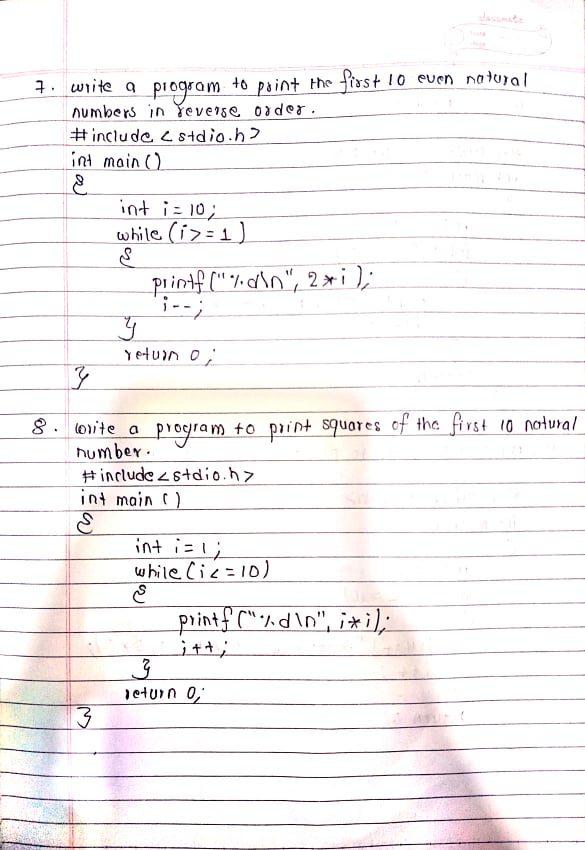 classmate
Date
Page
7. write a program to print the first 10 even natural
numbers in reverse order.
#include <stdio.h>
int main()
{
int i = 10;
while (i >= 1)
{
printf("%d\n", 2*i);
i--;
}
return 0;
}
8. write a program to print squares of the first 10 natural
number.
#include <stdio.h>
int main()
{
int i = 1;
while (i <= 10)
{
printf("%d\n", i*i);
i++;
}
return 0;
}